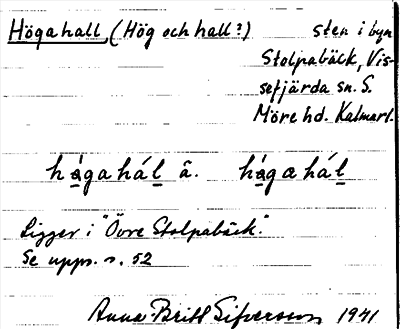 Högahall, (Hög och hall?) sten i byn
Stolpabäck, Vis-
sefjärda sn. S.
Möre hd. Kalmarl.
hágahál å. hágahál
Ligger i "Övre Stolpabäck".
Se upps. s. 52
Anna-Britt Sifversson 1941